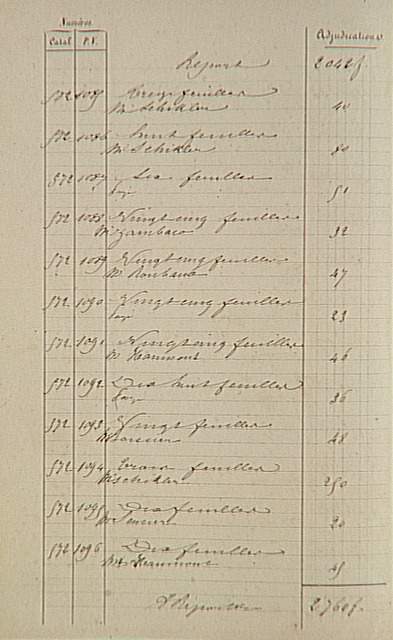 Numéros
Catal. P.V. Adjudications
Report 2042 f.
572 1085 Treize feuilles
M. Schikler 40
572 1086 Huit feuilles
M. Schikler 80
572 1087 Six feuilles
51
572 1088 Vingt cinq feuilles
M. Zambaco 32
572 1089 Vingt cinq feuilles
M. 47
572 1090 Vingt cinq feuilles
23
572 1091 Vingt cinq feuilles
M. Haumont 46
572 1092 Dix huit feuilles
36
572 1093 Vingt feuilles
48
572 1094 Trois feuilles
M. Schikler 250
572 1095 Dix feuilles
M. 20
572 1096 Dix feuilles
M. Haumont 45
A Reporter 2760 f.